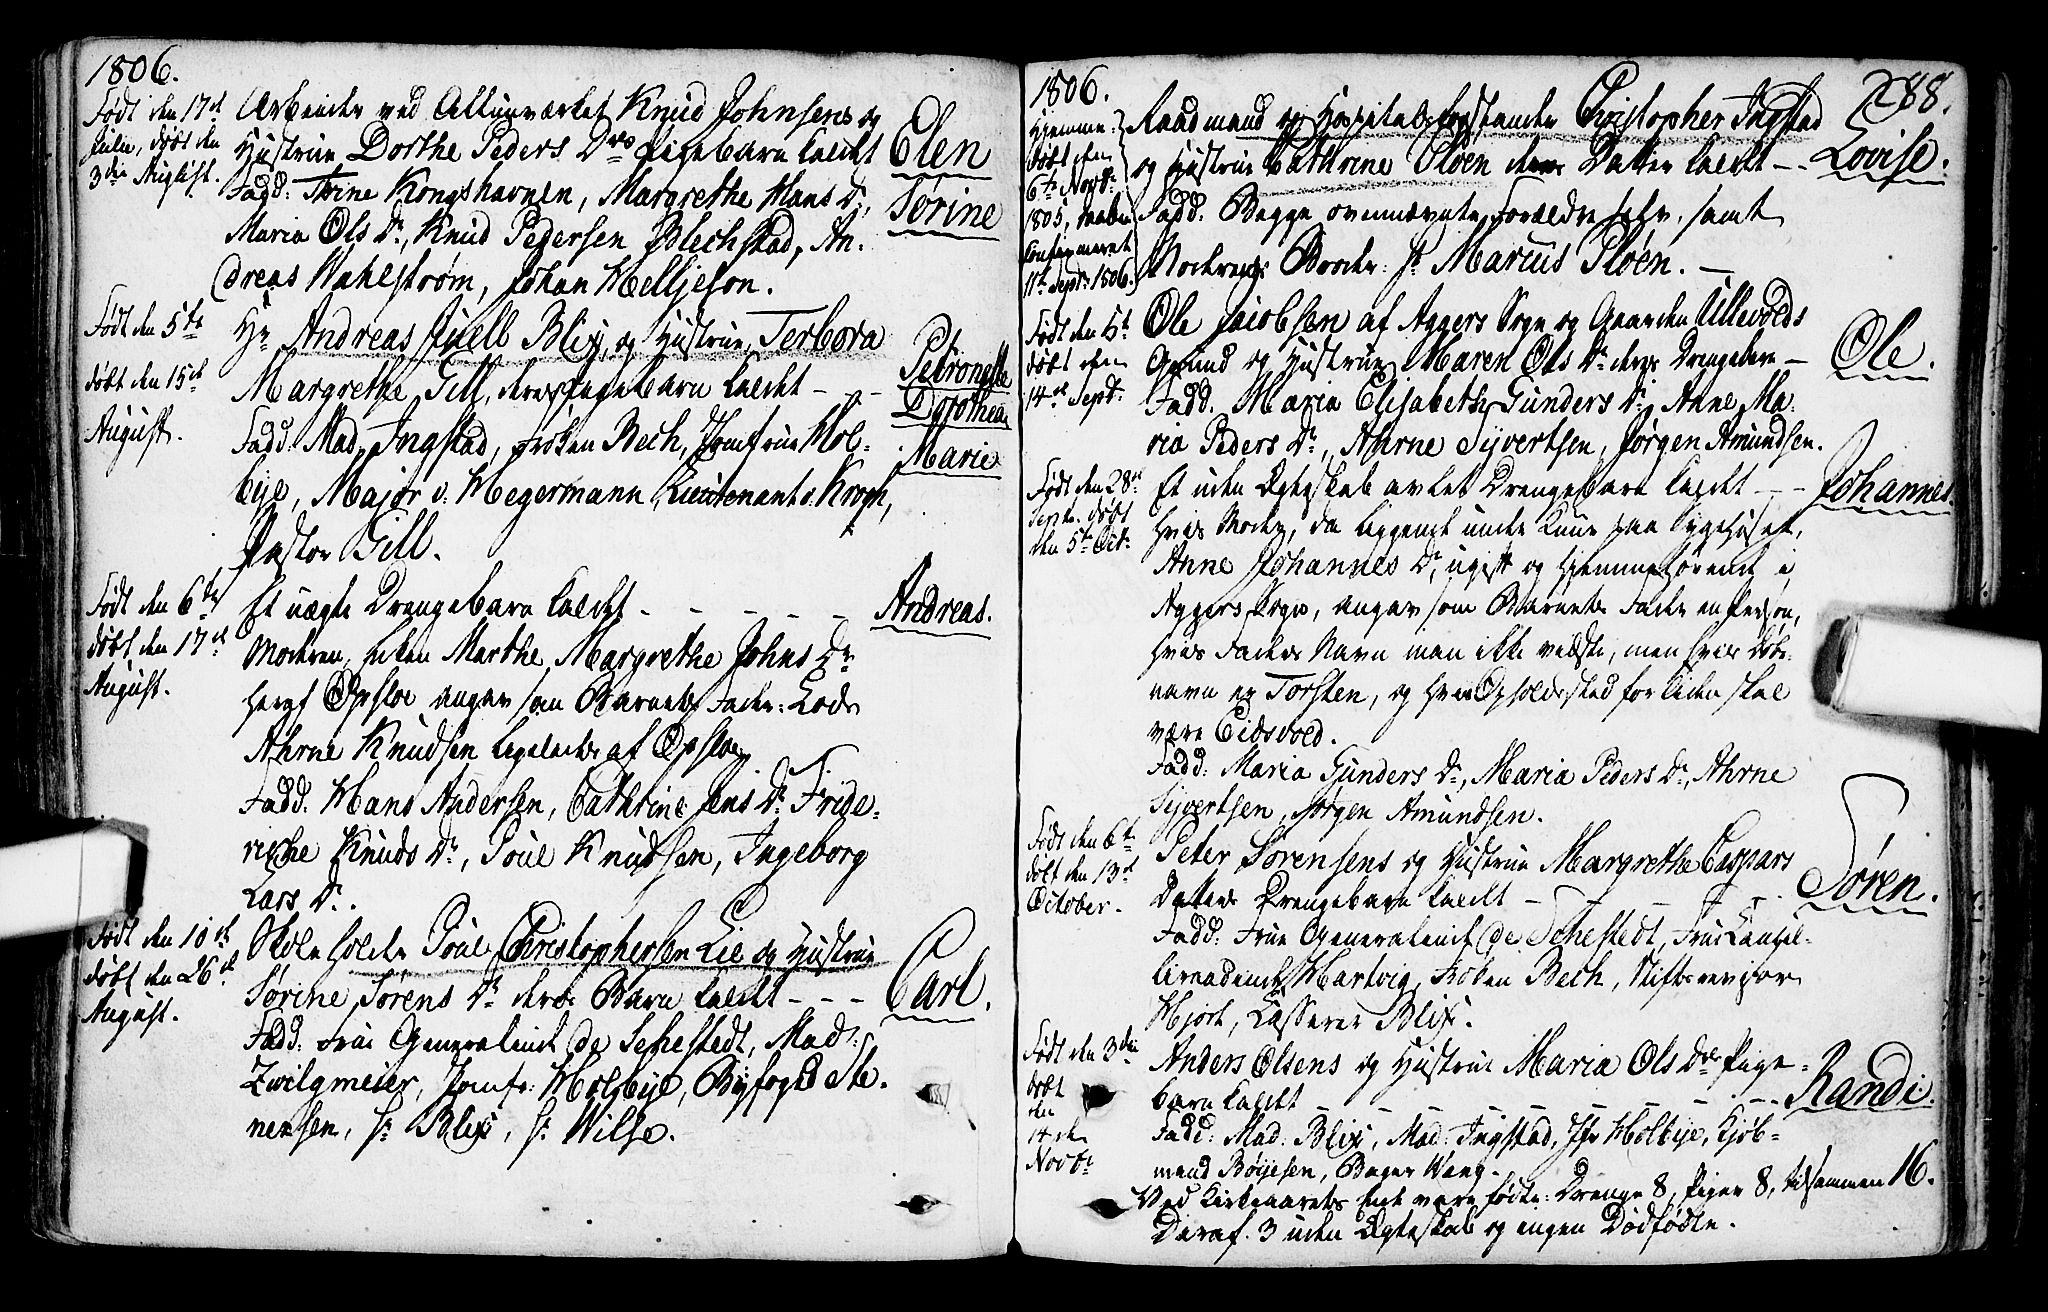 1806.
Født den 17de
Julii, døbt den
3die August.
Arbeider ved Allunværket Knud Johnsens og
Hustrue Dorthe Peders Drs Pigebarn kaldt
Elen
Sørine
Fadd: Trine Kongshavnen, Margrethe Hans Dr,
Maria Ols Dr, Knud Pedersen Blechstad, An-
dreas Wahlstrøm, Johan Helljeson.
Født den 5te
døbt den 15de
August.
Hr Andreas Juell Blix, og Hustrue Terbora
Margrethe Gill, deres Pigebarn kaldt - - -
Petronelle
Dorothea
Marie
Fadd: Mad. Ingstad, Frøken Bech, Jomfrue Hol-
bye, Major v. Hegermann, Lieutenant v. Krogh,
Pastor Gill.
Født den 6te
døbt den 17de
August.
Et uægte Drengebarn kaldt - - - - -
Andreas.
Moderen, Marthe Margrethe Johns Dr
Opsloe angav som Barnets Fader: Lods
Ahrne Knudsen ligeledes af Opsloe,
Fadd. Hans Andersen, Cathrine Jens Dr Fride-
riche Knuds Dr, Poul Knudsen, Ingeborg
Lars Dr.
Født den 10de
døbt den 26de
August.
Skoleholder Poul Christophersen Lie og Hustrue
Sørine Sørens Dr deres Barn kaldt - - -
Carl.
Fadd: Frue Generalinde de Sehestedt, Mad:
Zwilgmeier, Jomfr: Holbye, Byfoged Ste-
nersen, Sr Blix, Sr Wilse.
1806.
288.
Hjemme-
døbt den
6te Novbr:
1805,
Confirmeret
11te Septr: 1806.
Raadmand og Hospitalsforstander Christopher Ingstad
og Hustrue Cathrine Ploen deres Datter kaldt - -
Lovise.
Fadd. Begge ovennævnte Forældre selv, samt
Moderens Broder: Sr Marius Ploen. -
Født den 5te
døbt den
14de Septr:
Ole Jacobsen af Aggers Sogn og Gaarden Ullevolds
Grund og Hustrue Maren Ols Dr deres Drengebarn -
Ole.
Fadd. Maria Elisabeth Gunders Dr, Anne Ma-
ria Peders Dr, Ahrne Syvertsen, Jørgen Amundsen.
Født den 28de
Septr. døbt
den 5te Octr.
Et uden Egteskab avlet Drengebarn kaldt - -
Johannes.
hvis Moder, da liggende under Kuur paa Sygehuset,
Anne Johannes Dr, ugift og hjemmehørende i
Aggers Sogn, angav som Barnets Fader en Person,
hvis Faders Navn man ikke vidste, men hvis Døbe-
navn er Torsten, og hvis Opholdssted for Tiden skal
være Eidsvold.
Fadd: Maria Gunders Dr, Maria Peders Dr, Ahrne
Syvertsen, Jørgen Amundsen.
Født den 6te
døbt den 13de
October.
Peter Sørensens og Hustrue Margrethe Caspars
Datters Drengebarn kaldt - - - - -
Søren.
Fadd: Frue Generalinde de Sehestedt, Frue Cancel-
liraadinde Hartvig, Frøken Bech, Stiftsrevisor
Hjort, Casserer Blix.
Født den 3die
døbt
den
14de
Novbr
Anders Olsens og Hustrue Maria Ols Drs Pige-
barn kaldt - - - - - -
Randi.
Fadd: Mad: Blix, Mad: Ingstad, Jfr Holbye, Kjøb-
mand Bøyesen, Bager Wang.
Ved Kirkeaarets Ende vare fødte: Drenge 8, Piger 8, tilsammen 16.
Deraf 3 uden Egteskab og ingen Dødfødte.